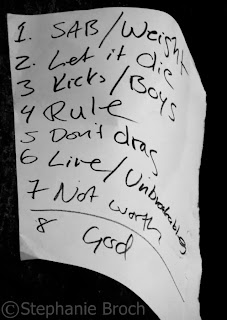 1. SAB/Weight
2. Let it die
3 Kicks/Boys
4 Rule
5 Don't drag
6 Live/Unbreakables
7 Not worth
8 God
©Stephanie Broch